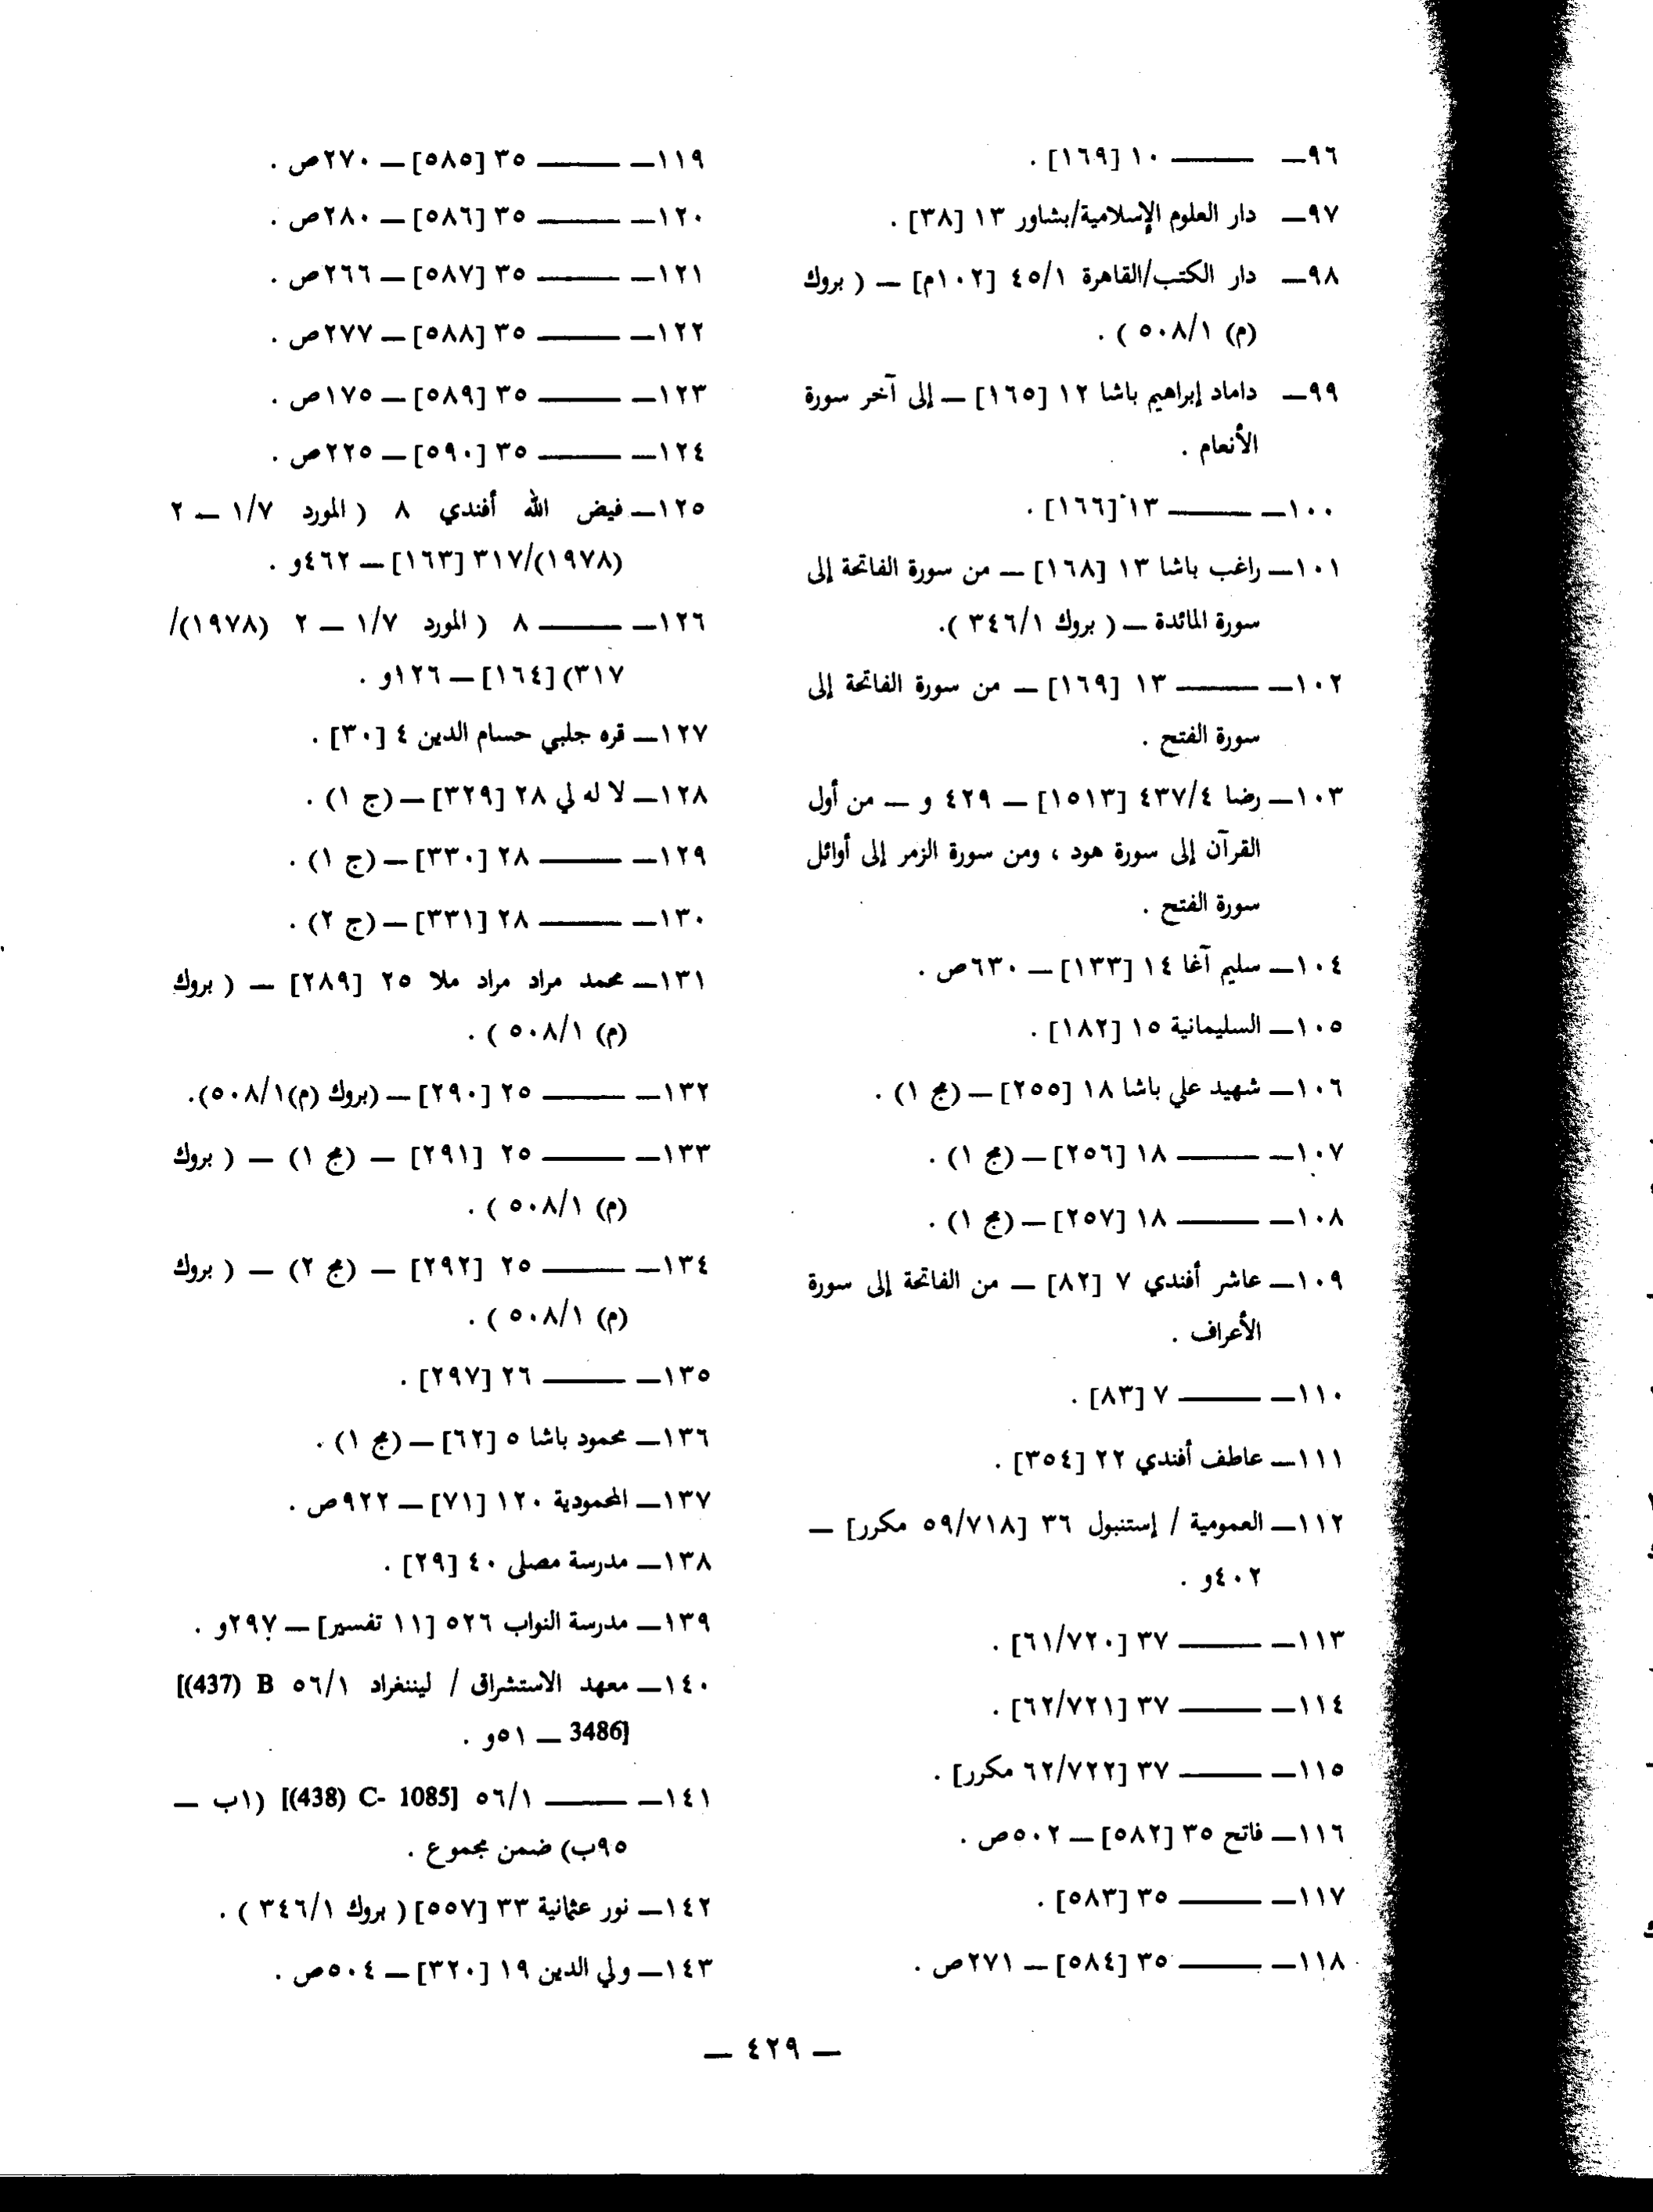 ٩٦ــ ــــــــ ١٠ [١٦٩] .
٩٧ــ دار العلوم الإسلامية/بشاور ١٣ [٣٨] .
٩٨ــ دار الكتب/القاهرة ٤٥/١ [١٠٢م] ــ ( بروك
(م) ٥٠٨/١ ) .
٩٩ــ داماد إبراهيم باشا ١٢ [١٦٥] ــ إلى آخر سورة
الأنعام .
١٠٠ــ ــــــــ ١٣ [١٦٦] .
١٠١ــ راغب باشا ١٣ [١٦٨] ــ من سورة الفاتحة إلى
سورة المائدة ــ ( بروك ٣٤٦/١ ).
١٠٢ــ ــــــــ ١٣ [١٦٩] ــ من سورة الفاتحة إلى
سورة الفتح .
١٠٣ــ رضا ٤٣٧/٤ [١٥١٣] ــ ٤٢٩ و ــ من أول
القرآن إلى سورة هود ، ومن سورة الزمر إلى أوائل
سورة الفتح .
١٠٤ــ سليم آغا ١٤ [١٣٣] ــ ٦٣٠ص .
١٠٥ــ السليمانية ١٥ [١٨٢] .
١٠٦ــ شهيد علي باشا ١٨ [٢٥٥] ــ (مج ١) .
١٠٧ــ ــــــــ ١٨ [٢٥٦] ــ (مج ١) .
١٠٨ــ ــــــــ ١٨ [٢٥٧] ــ (مج ١) .
١٠٩ــ عاشر أفندي ٧ [٨٢] ــ من الفاتحة إلى سورة
الأعراف .
١١٠ــ ــــــــ ٧ [٨٣] .
١١١ــ عاطف أفندي ٢٢ [٣٥٤] .
١١٢ــ العمومية / إستنبول ٣٦ [٥٩/٧١٨ مكرر] ــ
٤٠٢و .
١١٣ــ ــــــــ ٣٧ [٦١/٧٢٠] .
١١٤ــ ــــــــ ٣٧ [٦٢/٧٢١] .
١١٥ــ ــــــــ ٣٧ [٦٢/٧٢٢ مكرر] .
١١٦ــ فاتح ٣٥ [٥٨٢] ــ ٥٠٢ص .
١١٧ــ ــــــــ ٣٥ [٥٨٣] .
١١٨ــ ــــــــ ٣٥ [٥٨٤] ــ ٢٧١ص .
١١٩ــ ــــــــ ٣٥ [٥٨٥] ــ ٢٧٠ص .
١٢٠ــ ــــــــ ٣٥ [٥٨٦] ــ ٢٨٠ص .
١٢١ــ ــــــــ ٣٥ [٥٨٧] ــ ٢٦٦ص .
١٢٢ــ ــــــــ ٣٥ [٥٨٨] ــ ٢٧٧ص .
١٢٣ــ ــــــــ ٣٥ [٥٨٩] ــ ١٧٥ص .
١٢٤ــ ــــــــ ٣٥ [٥٩٠] ــ ٢٢٥ص .
١٢٥ــ فيض الله أفندي ٨ ( المورد ١/٧ ــ ٢
(١٩٧٨)/٣١٧ [١٦٣] ــ ٤٦٢و .
١٢٦ــ ــــــــ ٨ ( المورد ١/٧ ــ ٢ (١٩٧٨)/
٣١٧) [١٦٤] ــ ١٢٦و .
١٢٧ــ قره جلبي حسام الدين ٤ [٣٠] .
١٢٨ــ لا له لي ٢٨ [٣٢٩] ــ (ج ١) .
١٢٩ــ ــــــــ ٢٨ [٣٣٠] ــ (ج ١) .
١٣٠ــ ــــــــ ٢٨ [٣٣١] ــ (ج ٢) .
١٣١ــ محمد مراد مراد ملا ٢٥ [٢٨٩] ــ ( بروك
(م) ٥٠٨/١ ) .
١٣٢ــ ــــــــ ٢٥ [٢٩٠] ــ (بروك (م)٥٠٨/١).
١٣٣ــ ــــــــ ٢٥ [٢٩١] ــ (مج ١) ــ ( بروك
(م) ٥٠٨/١ ) .
١٣٤ــ ــــــــ ٢٥ [٢٩٢] ــ (مج ٢) ــ ( بروك
(م) ٥٠٨/١ ) .
١٣٥ــ ــــــــ ٢٦ [٢٩٧] .
١٣٦ــ محمود باشا ٥ [٦٢] ــ (مج ١) .
١٣٧ــ المحمودية ١٢٠ [٧١] ــ ٩٢٢ص .
١٣٨ــ مدرسة مصلى ٤٠ [٢٩] .
١٣٩ــ مدرسة النواب ٥٢٦ [١١ تفسير] ــ ٢٩٧و .
١٤٠ــ معهد الاستشراق / ليننغراد ٥٦/١ [(437) B
3486] ــ ٥١و .
١٤١ــ ــــــــ ٥٦/١ [(438) C- 1085] (١ب ــ
٩٥ب) ضمن مجموع .
١٤٢ــ نور عثمانية ٣٣ [٥٥٧] ( بروك ٣٤٦/١ ) .
١٤٣ــ ولي الدين ١٩ [٣٢٠] ــ ٥٠٤ص .
ــ ٤٢٩ ــ